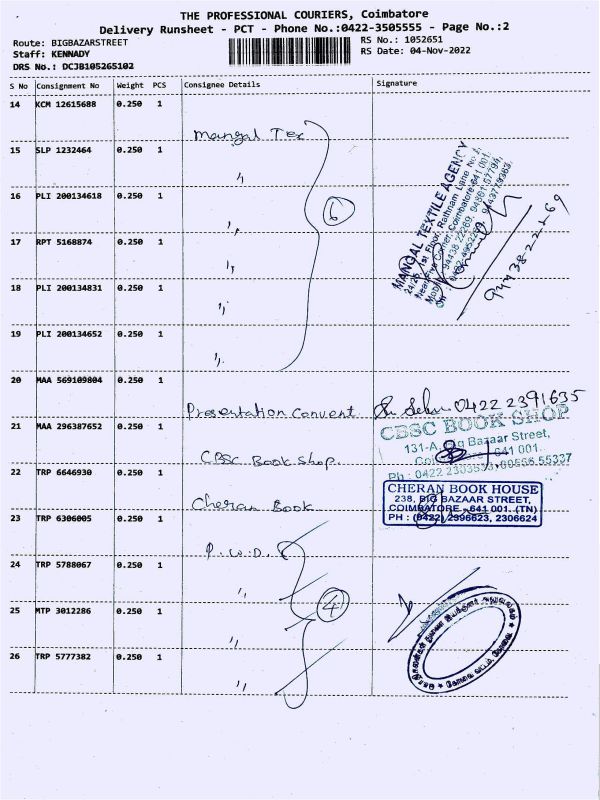 THE PROFESSIONAL COURIERS, Coimbatore
Delivery Runsheet - PCT - Phone No.:0422-3505555 - Page No.:2
Route: BIGBAZARSTREET
RS No.: 1052651
Staff: KENNADY
RS Date: 04-Nov-2022
DRS No.: DCJB105265102
S No Consignment No Weight PCS Consignee Details Signature
14 KCM 12615688 0.250 1
Mangal Tex
15 SLP 1232464 0.250 1
"
16 PLI 200134618 0.250 1
"
6
17 RPT 5168874 0.250 1
"
18 PLI 200134831 0.250 1
"
19 PLI 200134652 0.250 1
"
MANGAL TEXTILE AGENCY
1st Floor, Rathnam Lane No.1,
Coimbatore-641 001.
20 MAA 569109804 0.250 1
Presentation Convent 0422 2391635
21 MAA 296387652 0.250 1
CBSC Book Shop
CBSC BOOK SHOP
131-A, Big Bazaar Street,
641 001.
Ph : 0422
22 TRP 6646930 0.250 1
Cheran Book
CHERAN BOOK HOUSE
238, BIG BAZAAR STREET,
COIMBATORE - 641 001. (TN)
PH : (0422) 2396623, 2306624
23 TRP 6306005 0.250 1
P.W.D.
24 TRP 5788067 0.250 1
"
4
25 MTP 3012286 0.250 1
"
26 TRP 5777382 0.250 1
"